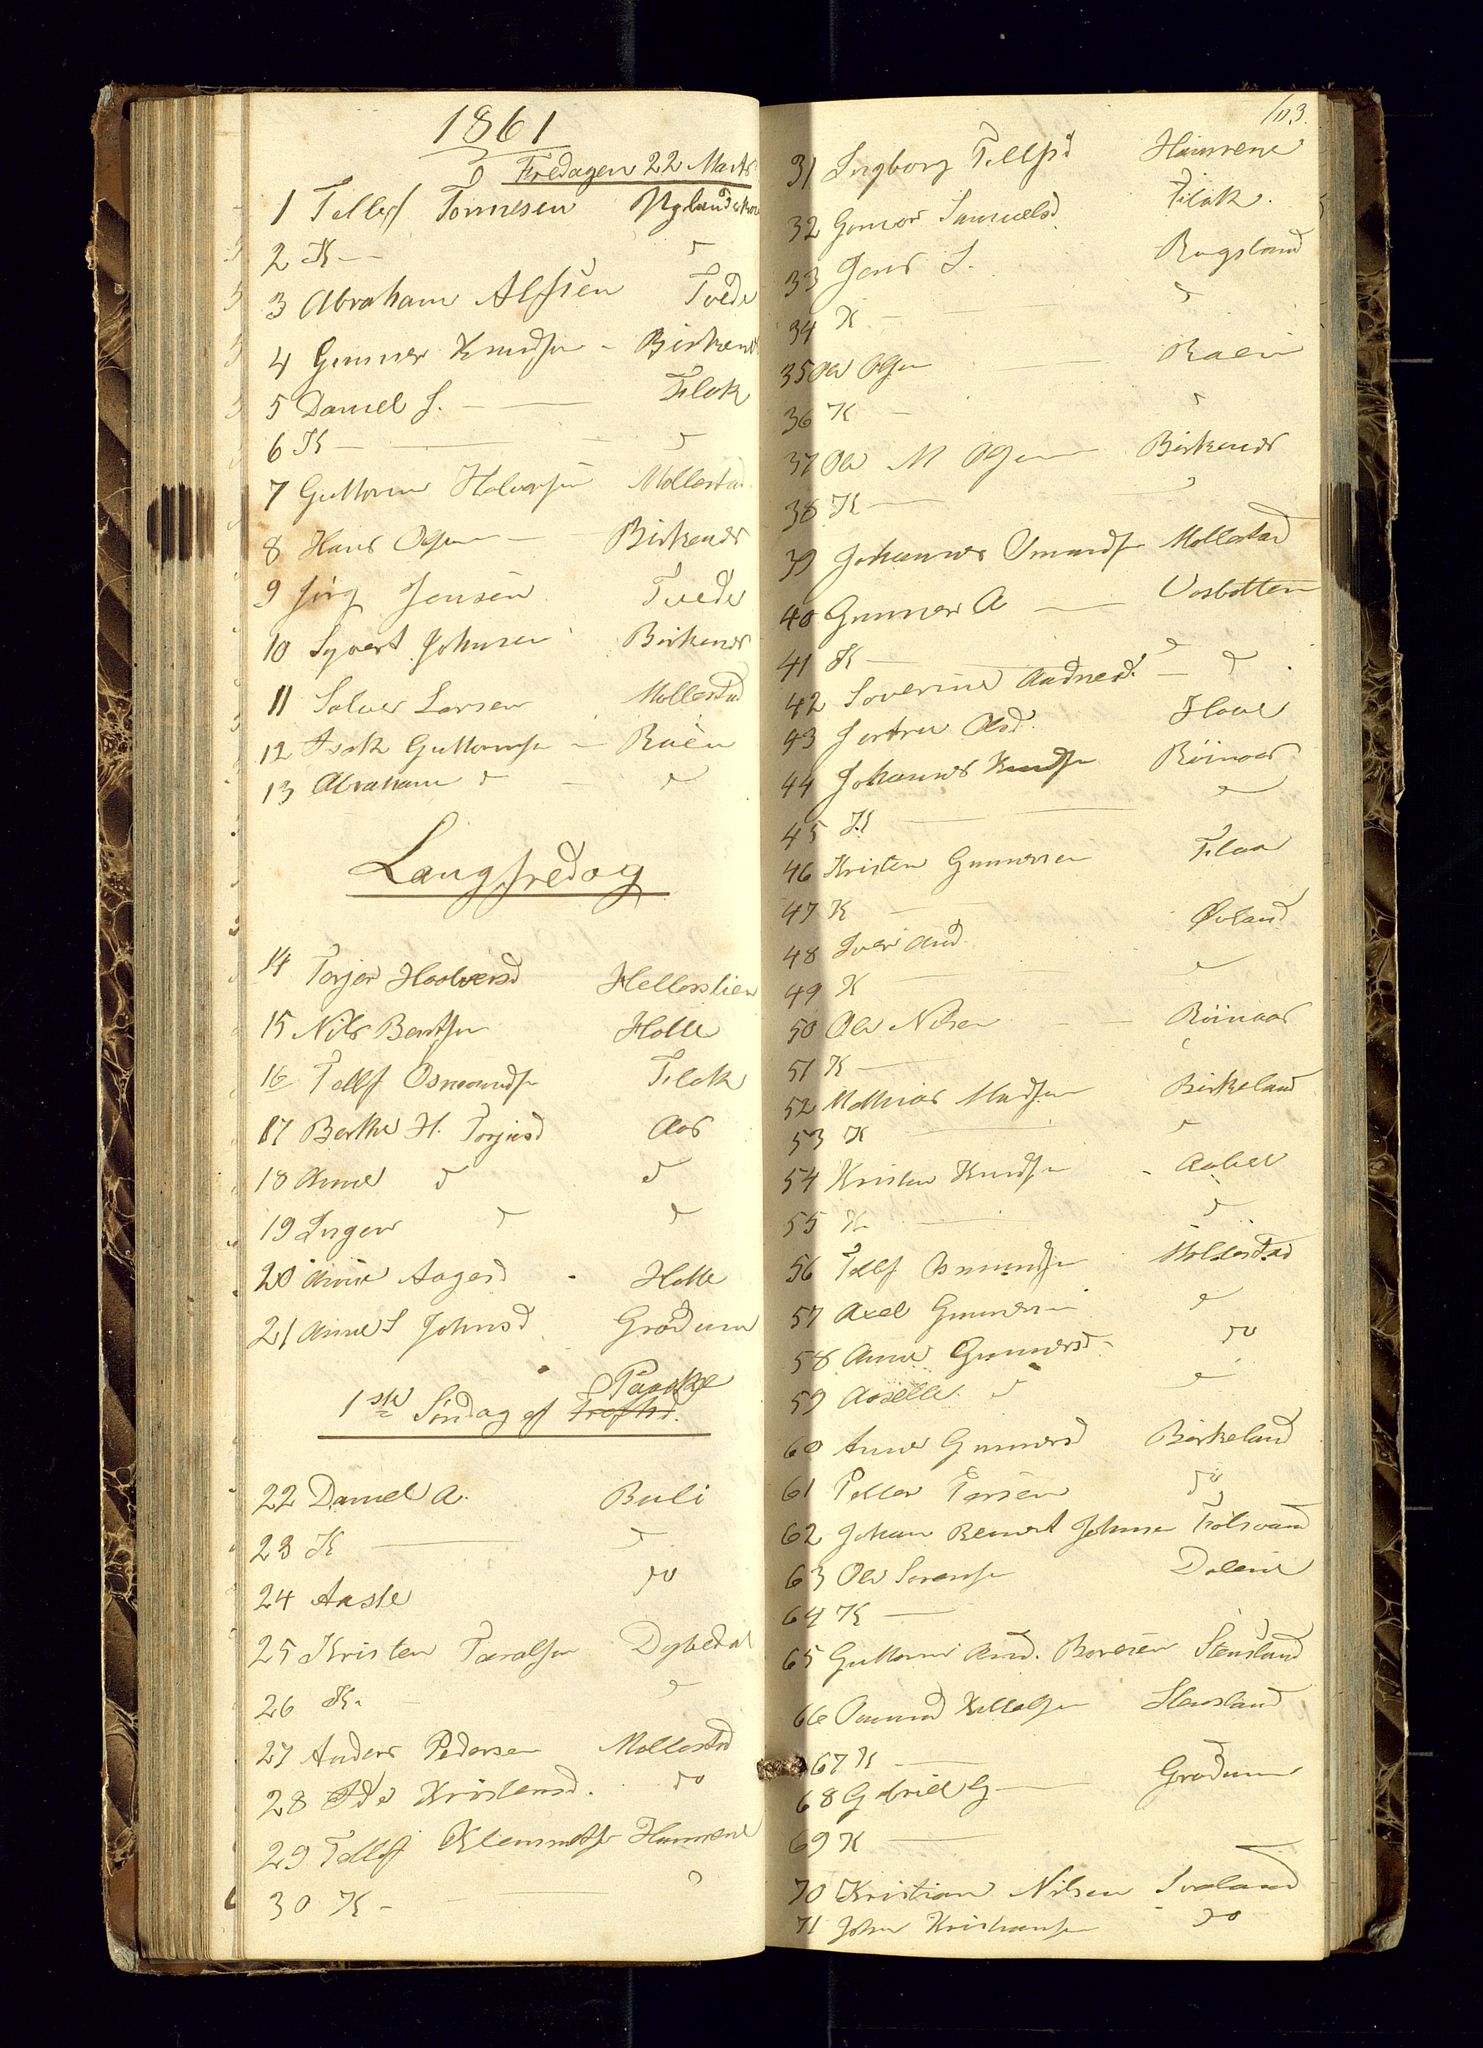 1861
Fredagen 22 Marts
1 Tellef Tonnesen
2 K — "
3 Abraham Alfsen Tvede
4 Gunner Knudsen - Birkenes
5 Daniel J. — Flak
6 K — "
7 Guttorm Halvorsen Mollestad
8 Hans Olsen — Birkenes
9 Jörg Jensen Tvede
10 Syvert Johnsen Birkenes
11 Salve Larsen Mollestad
12 Isak Guttormsen — Raen
13 Abraham " — "
Langfredag
14 Torjer Haalversd Hellerslien
15 Nils Bentsen Holte
16 Tellf Osmundsen Flak
17 Berthe H. Torjusd Aas
18 Anne " "
19 Inger " "
20 Anne Aagesd. Holte
21 Anne S Johnsd Grødum
1ste Søndag ef Paaske
22 Daniel A. Buli
23 K — "
24 Aasle do
25 Kristen Taralsen Dybedal
26 K. — "
27 Anders Pedersen Mollestad
28 Kristensd. do
29 Tellef Klemmetsen
30 K — "
113.
31 Ingborg Tellfsd
32 Gunvor Samuelsd Flak.
33 Jens S. Rugsland
34 K. — "
35 Ole Olsen — Raen
36 K — "
37 Ole M Olsen Birkenes
38 K — "
39 Johannes Osmundsen Mollestad
40 Gunner A — Vasbotten
41 K — "
42 Soverine Aadnesd. — "
43 Jertru Olsd.
44 Johannes Knudsen
45 K — "
46 Kristen Gunnersen
47 K —
48 Iver And Øvland
49 K — "
50 Ole Nilsen —
51 K — "
52 Mathias Madsen Birkeland
53 K — "
54 Kristen Knudsen
55 K — "
56 Tellf Osmundsen Mollestad
57 Axel Gunnersen "
58 Anne Gunnersd do
59 " "
60 Anne Gunnersd Birkeland
61 Peller Tersen do
62 Johan Bernert Johnsen
63 Ole Sorensen Dalene
64 K —
65 Guttorm And. Boresen Stensland
66 Osmund Kittelsen
67 K —
68 Gabriel G — Grødum
69 K —
70 Kristian Nilsen Svaland
71 John Kristiansen do